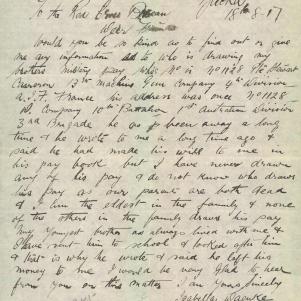 18th-8-17
To the Red Cross
Dear
Would you be so kind as to find out or give
me any information as to who is drawing my
brothers military pay his No is No 1128 Pte Stewart
Cameron 3rd Machine Gun Company 4th Division
A.I.F. France his address was once No 1128
Company 10th Battalion 1st Australian Division
3rd Brigade he has been away a long
time & he wrote to me a long time ago &
said he had made his will to me in
his pay book but I have never drawn
any of his pay & do not know who draws
his pay as our parents are both dead
& I am the eldest in the family & none
of the others in the family draws his pay
My youngest brother has always lived with me &
I have sent him to school & looked after him
& that is why he wrote & said he left his
money to me I would be very glad to hear
from you on this matter I am Yours Sincerely
Isabella